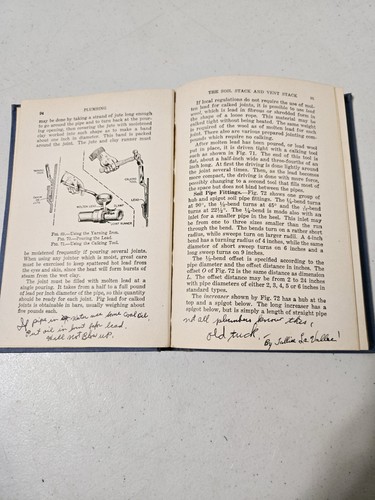 54
PLUMBING
may be done by taking a strand of jute long enough
to go around the pipe and to turn back at the pour-
ing opening, then covering the jute with moistened
clay worked into such shape as to make a band
about one inch in diameter. This band is packed
around the joint. The jute and clay runner must
FIG. 69.—Using the Yarning Iron.
FIG. 70.—Pouring the Lead.
FIG. 71.—Using the Calking Tool.
be moistened frequently if pouring several joints.
When using any jointer which is moist, great care
must be exercised to keep scattered hot lead from
the eyes and skin, since the heat will form bursts of
steam.
The joint must be filled with molten lead at a
single pouring. It takes from a half to a full pound
of lead per inch diameter of the pipe, so this quantity
should be ready for each joint. Pig lead for calked
joints is obtainable in bars, usually weighing about
five pounds each.
If pipe is
water use some Coal Oil
Put oil in joint
lead.
shall not Blow up.
THE SOIL STACK AND VENT STACK
If local regulations do not require the use of mol-
ten lead for calked joints, it is possible to use lead
wool, which is lead in fibrous or shredded form in
the shape of a loose rope. This material may be
calked tight without being heated. The same weight
is required of the wool as of molten lead for each
joint. There also are various prepared jointing com-
pounds which require no calking.
After molten lead has been poured, or lead wool
put in place, it is driven tight with a calking tool
such as shown in Fig. 71. The end of this tool is
flat, about a half-inch wide and three-fourths of an
inch long. At first the driving is done lightly around
the joint several times. Then, as the lead becomes
more compact, the driving is done with more force,
possibly changing to a second tool that fits most of
the space but does not bind between the pipes.
Soil Pipe Fittings.—Fig. 72 shows one group of
hub and spigot soil pipe fittings. The ¼-bend turns
at 90°, the ⅛-bend turns at 45° and the
-bend
turns at 22½°. The ¼-bend is made also with an
inlet for a smaller pipe in the heel. This inlet may
be from one to three sizes smaller than the run
through the bend. The bends turn on a rather short
radius, while sweeps turn on larger radii. A 4-inch
bend has a turning radius of 4 inches, while the same
diameter of short sweep turns on 6 inches and a
long sweep turns on 9 inches.
The ⅛-bend offset is specified according to the
pipe diameter and the offset distance in inches. The
offset O of Fig. 72 is the same distance as dimension
L. The offset distance may be from 2 to 24 inches
with pipe diameters of either 2, 3, 4, 5 or 6 inches in
standard types.
The increaser shown by Fig. 72 has a hub at the
top and a spigot below. The long increaser has a
spigot below, but is simply a length of straight pipe
not all plumbers know this,
old trick.
By